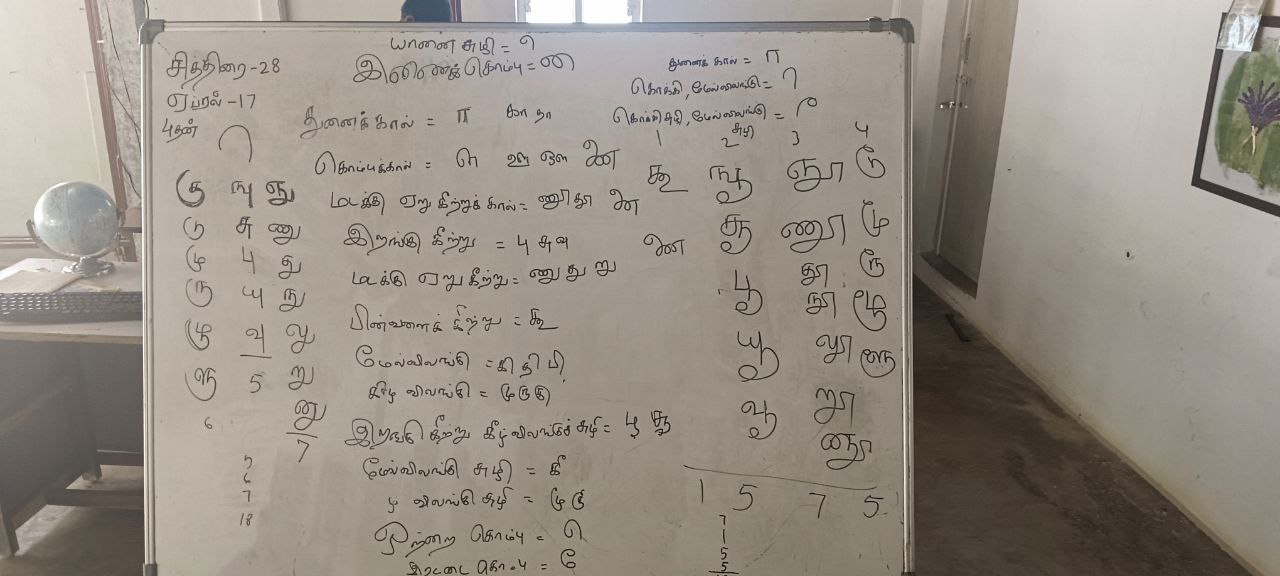 யானை சுழி = ி
சித்திரை-28
இணைக்கொம்பு = ை
துணைக் கால் = ா
ஏப்ரல் -17
கொக்கி, மேல்விலங்கு =
புதன்
துணைக் கால் = ா கா தா
கொக்கி சுழி, மேல்விலங்கு =
1 2 சுழி 3 4
கொம்புக்கால் = ள ஊ ஔ
கூ ஙூ ஞூ டூ
கு ஙு ஞு
மடக்கு ஏறு கீற்றுக் கால் = ணூ தூ
டு சு ணு
இறங்கு கீற்று = பு சு வு
சூ ணூ மூ
மு பு து
மடக்கு ஏறு கீற்று = னு து று
பூ தூ ரூ
ரு யு நு
பின்வளைக் கீற்று = கூ
நூ ழூ
ழு வு லு
மேல்விலங்கு = கி தி பி
யூ லூ ளூ
ளு 5 று
கீழ் விலங்கு = மு கு
வூ றூ
6 னு
7
இறங்கு கீற்று கீழ்விலங்குச் சுழி = பூ சூ
னூ
5
மேல்விலங்கு சுழி = கீ
6
7
கீழ் விலங்கு சுழி = மூ ரூ
1 5 7 5
18
ஒற்றை கொம்பு = ெ
7
1
5
இரட்டை கொம்பு = ே
5